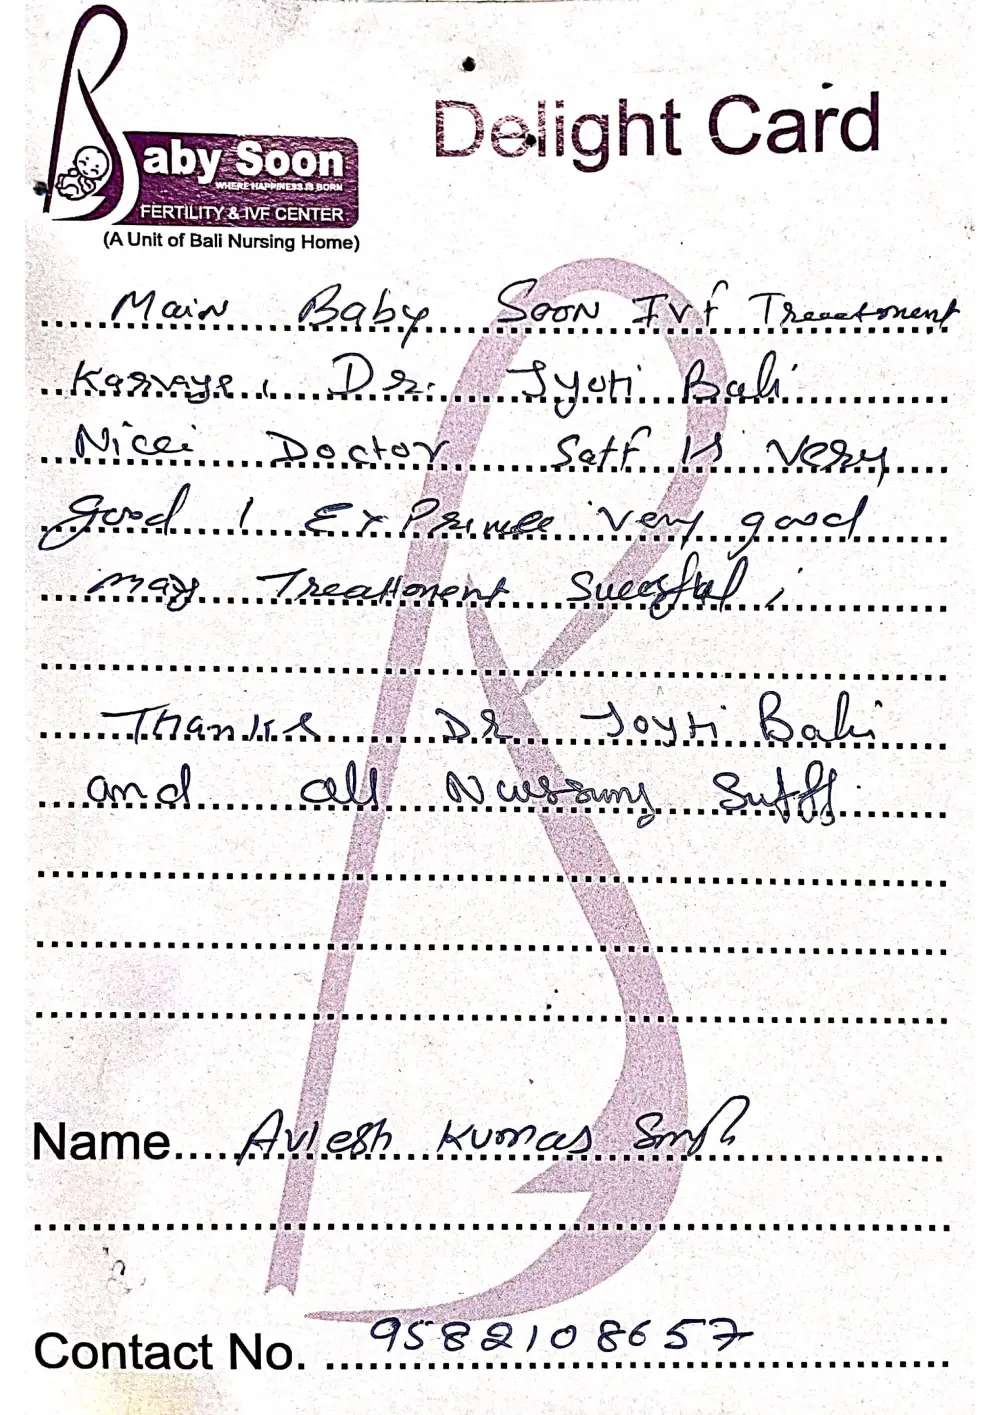 Baby Soon
WHERE HAPPINESS IS BORN
FERTILITY & IVF CENTER
(A Unit of Bali Nursing Home)
Delight Card
Main Baby Soon IVf Treeatment
Karvaye, Dr. Jyoti Bali
Nicei Doctor Satf Is very
good ! ExPrinee very good
may Treatment Sucesful ;
Thanks Dr Joyti Bali
and all Nurssing Sutff.
Name.... Avlesh Kumar Singh
Contact No. .... 9582108657